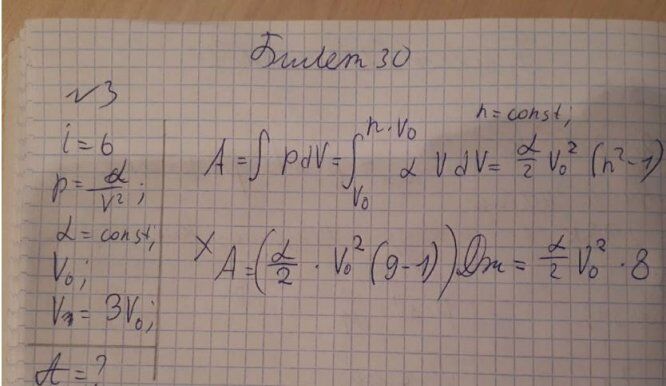 Билет 30
√3
i = 6
p = α/V²;
α = const;
V₀;
V₁ = 3V₀;
A = ?
n = const;
A = ∫ p dV = ∫_{V₀}^{n·V₀} α V dV = α/2 V₀² (n²-1)
A = (α/2 · V₀² (9-1)) Дж = α/2 V₀² · 8